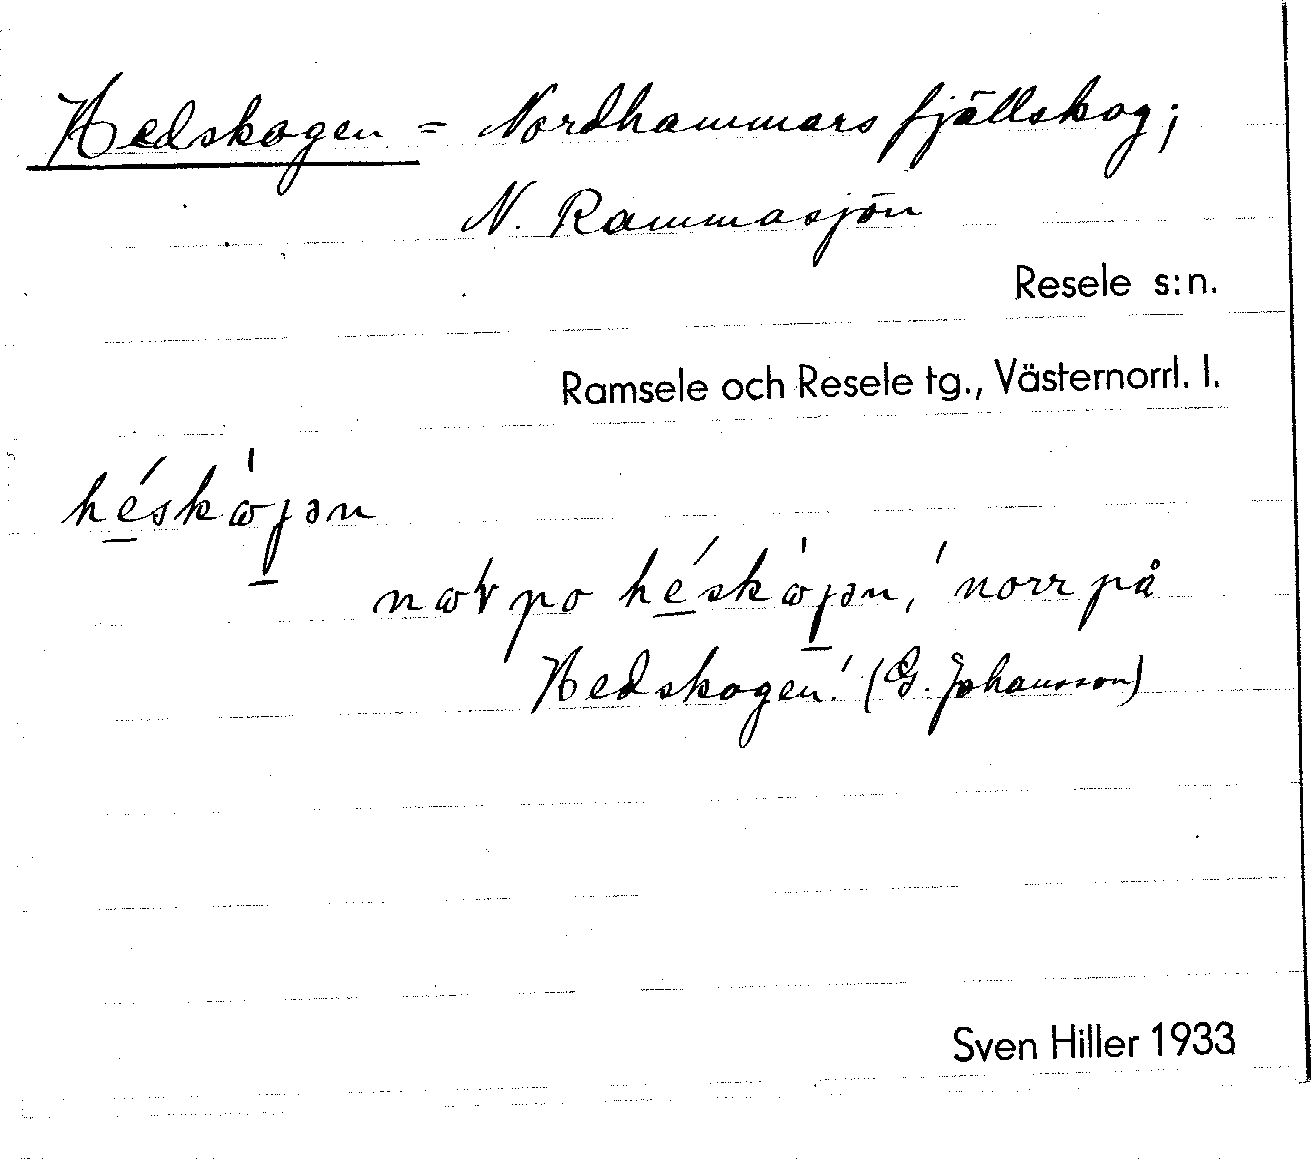 Hedskogen = Nordhammars fjällskog;
N. Rammasjön
Resele s:n.
Ramsele och Resele tg., Västernorrl. l.
héskòjən
po héskòjən, 'norr på
Hedskogen.' (G. Johansson)
Sven Hiller 1933